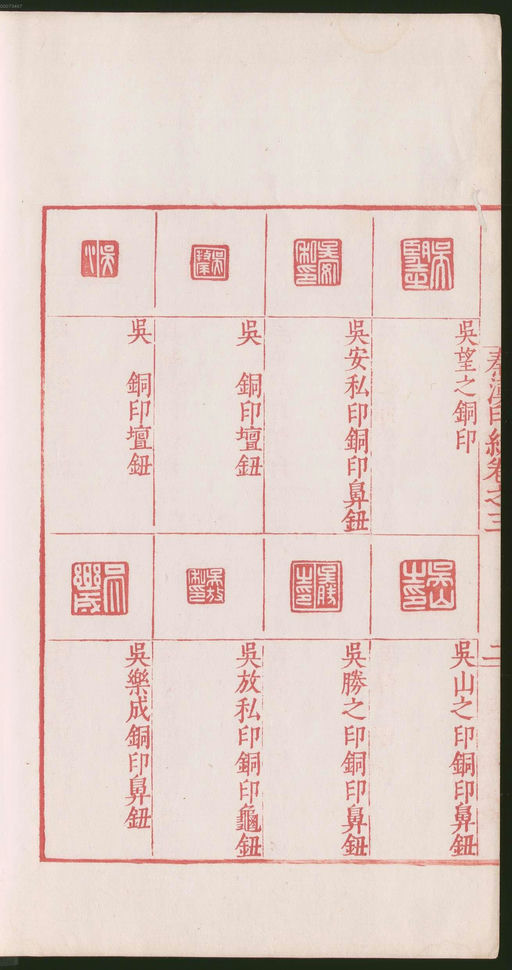 00073467
秦漢印統卷之三
二
吳望之銅印
吳安私印銅印鼻鈕
吳 銅印壇鈕
吳 銅印壇鈕
吳山之印銅印鼻鈕
吳勝之印銅印鼻鈕
吳放私印銅印龜鈕
吳樂成銅印鼻鈕